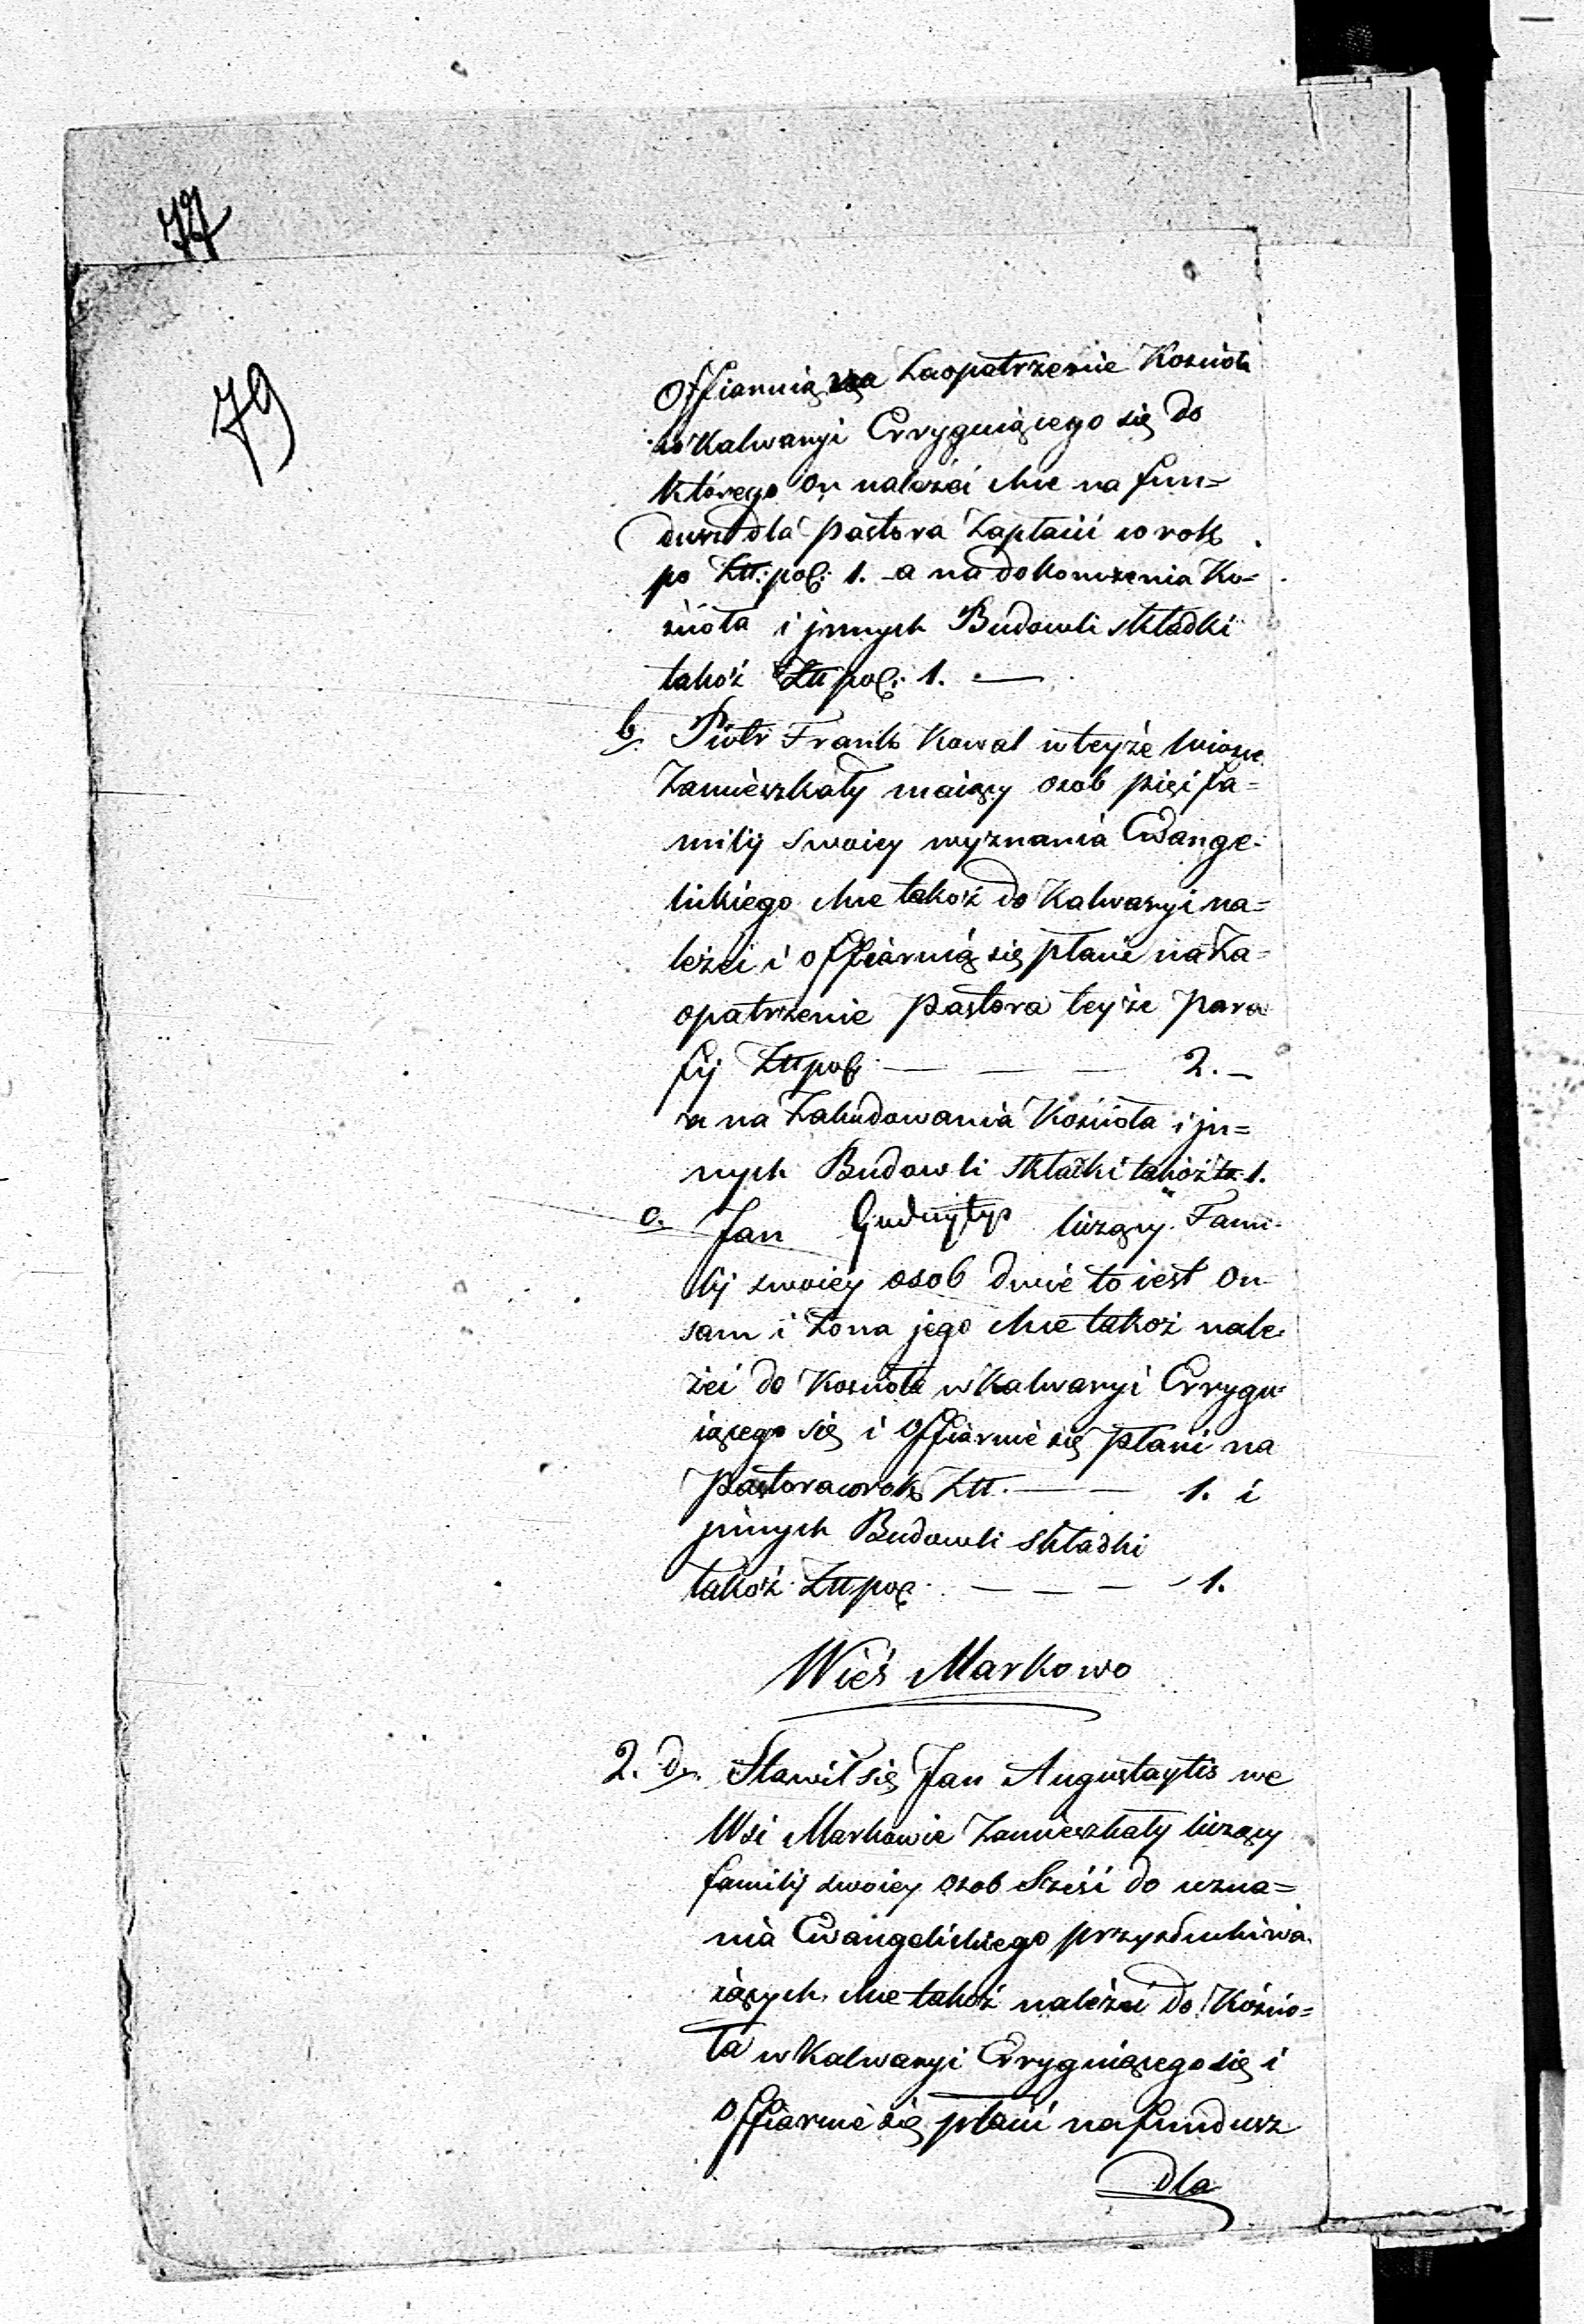 77
79
Offiaruią na Zaopatrzenie Kościoła
w Kalwaryi Erryguiącego się do
którego on należéć chce na fun=
dusz dla pastora Zapłacić w rok
po Złł: pol: 1. a na dokończenia Ko=
śiioła i jnnych Budowli składki
takoż Złł pol: 1. —
b. Piotr Frank Kowal w teyże wiosce
Zamieszkały maiący osob pięć fa=
milij swoiey wyznania Ewange=
lickiego chce takoż do Kalwaryi na=
leżéć i offiaruią się płacić na Za=
opatrzenie pastora teyże Para
fij Złł pol: — — — 2. —
a na Zabudowania Kościoła i jn=
nych Budowli składki takoż zł. 1.
c. Jan liczący Fami=
lij swoiey osob dwie to iest on
sam i Zona jego chce takoż nale=
żéć do Kościoła w Kalwaryi Errygu=
iącego się i offiaruie się płacić na
pastora w rok Złł. — — 1. i
jnnych Budowli składki
takoż Złł pol: — — — 1.
Wieś Markowo
2. d. Stawił się Jan Augustaytis we
Wsi Markowie Zamieszkały liczący
familij swoiey osob Sześć do uzna=
nia Ewangelickiego przysłuchiwa=
iących chce takoż należéć do Kościo=
ła w Kalwaryi Erryguiącego się i
offiaruie się płacić na fundusz
dla